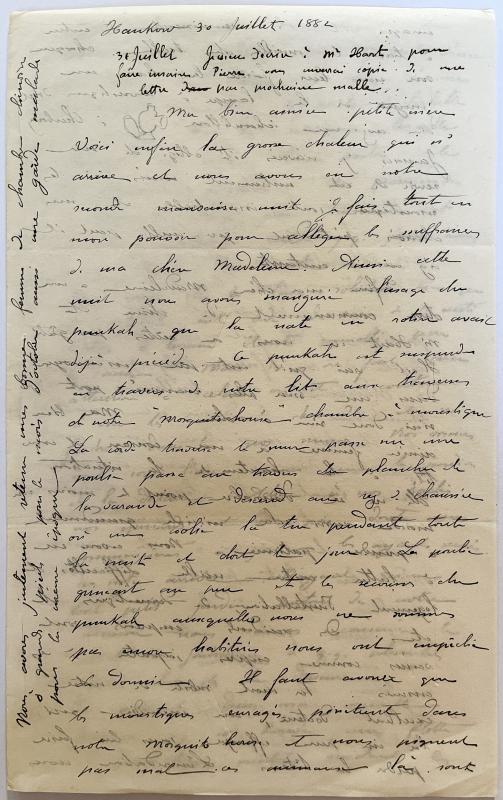 Hankow 30 Juillet 1882
31 Juillet J'écris à Mr Hart pour
faire insérer Pierre, vous enverrai copie de ma
lettre par prochaine malle.
Ma bien aimée petite mère
Voici enfin la grosse chaleur qui est
arrivée et nous avons eu notre
seconde mauvaise nuit je fais tout en
mon pouvoir pour alléger les souffrances
de ma chère Madeleine. Ainsi cette
nuit nous avons inauguré l'usage du
punkah que la natte en rotin avait
déjà précédé. Ce punkah est suspendu
en travers de notre lit aux traverses
de notre "mosquito house" chambre à moustiques
La corde traverse le mur passe sur une
poulie passe au travers du plancher de
la varande et descend au rez de chaussée
où un coolie la tire pendant toute
la nuit et dort le jour. La poulie
grinçant un peu et le secousses du
punkah auxquelles nous ne sommes
pas encore habitués nous ont empêchés
de dormir. Il faut avouer que
les moustiques enragés pénètrent dans
notre mosquito house et nous piquent
pas mal ces animaux là sont
Nous avons justement retenu une bonne femme de chambre chinoise
à grands pieds pour le mois d'octobre aussi une garde malade
pour la même époque